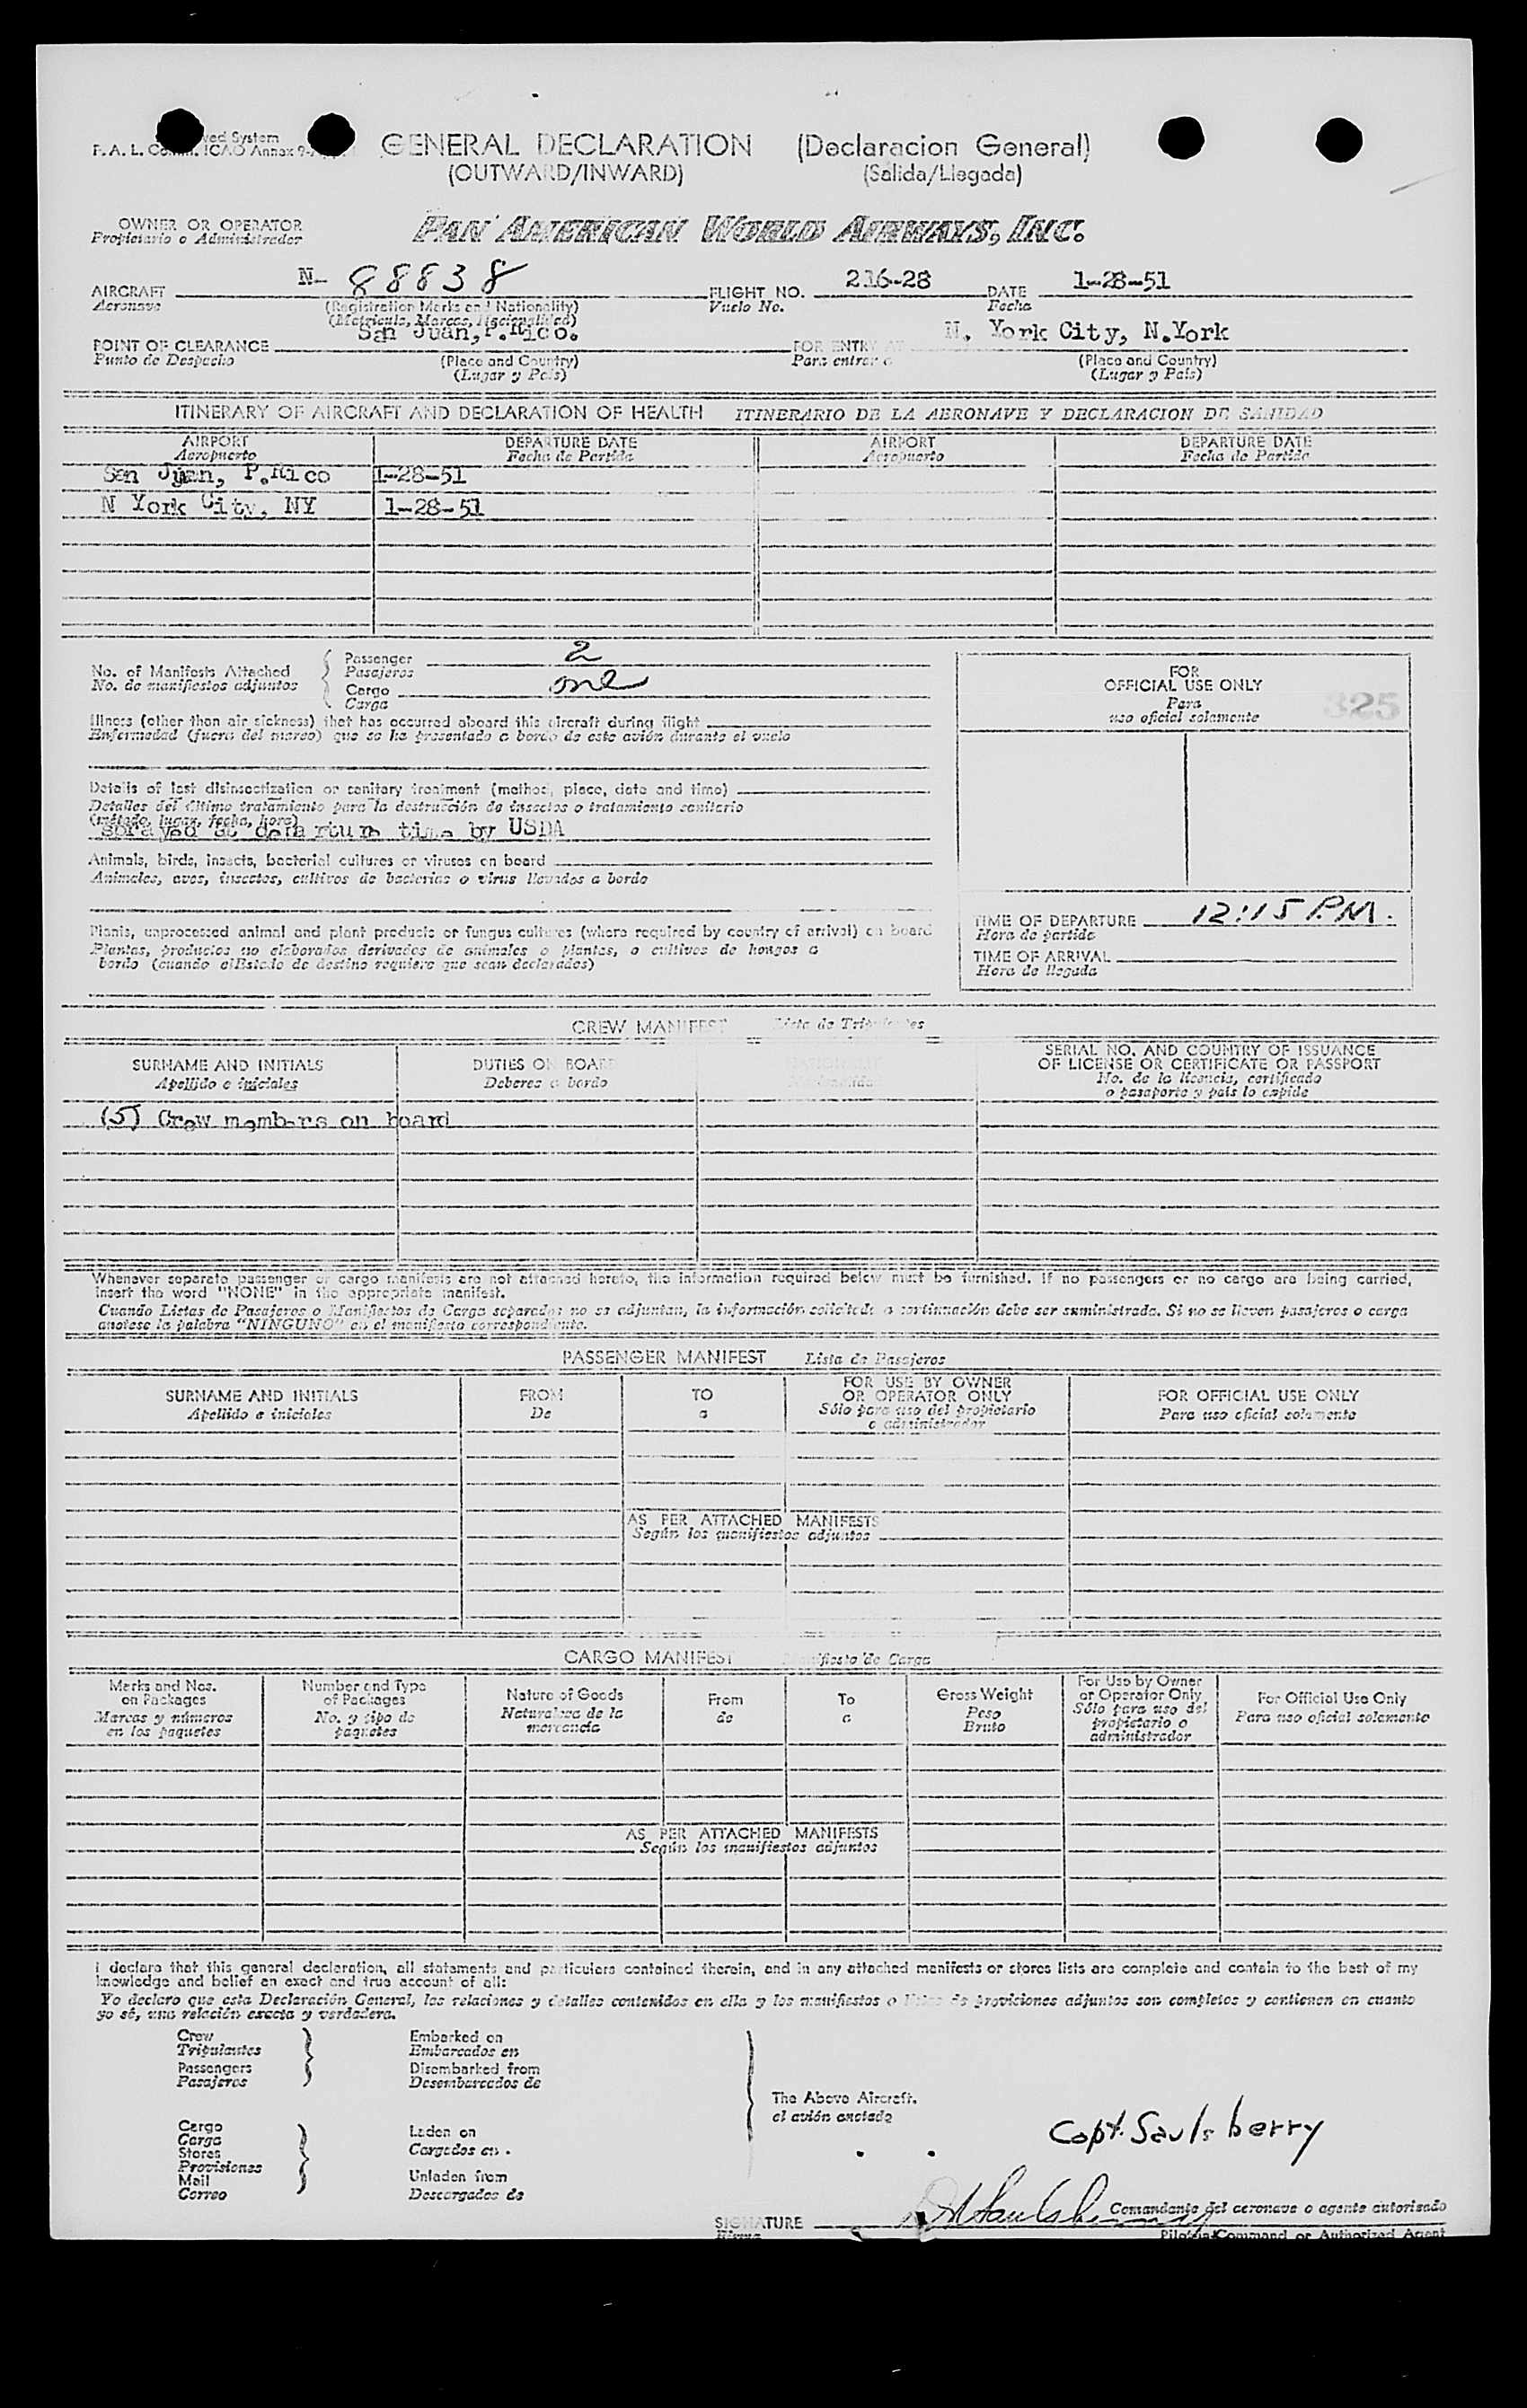 ved System
F.A.L. Comm. ICAO Annex 9-
GENERAL DECLARATION (Declaracion General)
(OUTWARD/INWARD) (Salida/Llegada)
OWNER OR OPERATOR
Propietario o Administrador
PAN AMERICAN WORLD AIRWAYS, INC.
AIRCRAFT N- 88838 FLIGHT NO. 216-28 DATE 1-28-51
Aeronave (Registration Marks and Nationality) Vuelo No. Fecha
(Matricula, Marcas, Nacionalidad)
San Juan, P.Rico. N. York City, N.York
POINT OF CLEARANCE FOR ENTRY AT
Punto de Despacho (Place and Country) Para entrar a (Place and Country)
(Lugar y País) (Lugar y País)
ITINERARY OF AIRCRAFT AND DECLARATION OF HEALTH ITINERARIO DE LA AERONAVE Y DECLARACION DE SANIDAD
AIRPORT DEPARTURE DATE AIRPORT DEPARTURE DATE
Aeropuerto Fecha de Partida Aeropuerto Fecha de Partida
San Juan, P.Rico 1-28-51
N York City, NY 1-28-51
No. of Manifests Attached Passenger 2
No. de manifiestos adjuntos Pasajeros
Cargo one
Carga
FOR
OFFICIAL USE ONLY
Para
uso oficial solamente
325
Illness (other than air sickness) that has occurred aboard this aircraft during flight
Enfermedad (fuera del mareo) que se ha presentado a bordo de este avión durante el vuelo
Details of last disinsectization or sanitary treatment (method, place, date and time)
Detalles del último tratamiento para la destrucción de insectos o tratamiento sanitario
(método, lugar, fecha, hora)
sprayed at departure time by USDA
Animals, birds, insects, bacterial cultures or viruses on board
Animales, aves, insectos, cultivos de bacterias o virus llevados a bordo
Plants, unprocessed animal and plant products or fungus cultures (where required by country of arrival) on board
Plantas, productos no elaborados derivados de animales o plantas, o cultivos de hongos a
bordo (cuando el Estado de destino requiera que sean declarados)
TIME OF DEPARTURE 12:15 P.M.
Hora de partida
TIME OF ARRIVAL
Hora de llegada
CREW MANIFEST Lista de Tripulantes
SURNAME AND INITIALS DUTIES ON BOARD NATIONALITY SERIAL NO. AND COUNTRY OF ISSUANCE
OF LICENSE OR CERTIFICATE OR PASSPORT
Apellido e iniciales Deberes a bordo Nacionalidad No. de la licencia, certificado
o pasaporte y país lo expide
(5) Crew members on board
Whenever separate passenger or cargo manifests are not attached hereto, the information required below must be furnished. If no passengers or no cargo are being carried,
insert the word "NONE" in the appropriate manifest.
Cuando Listas de Pasajeros o Manifiestos de Carga separados no se adjuntan, la información solicitada a continuación debe ser suministrada. Si no se llevan pasajeros o carga
anotese la palabra "NINGUNO" en el manifiesto correspondiente.
PASSENGER MANIFEST Lista de Pasajeros
SURNAME AND INITIALS FROM TO FOR USE BY OWNER
OR OPERATOR ONLY FOR OFFICIAL USE ONLY
Apellido e iniciales De a Sólo para uso del propietario
o administrador Para uso oficial solamente
AS PER ATTACHED MANIFESTS
Según los manifiestos adjuntos
CARGO MANIFEST Manifiesto de Carga
Marks and Nos.
on Packages
Marcas y números
en los paquetes
Number and Type
of Packages
No. y tipo de
paquetes
Nature of Goods
Naturaleza de la
mercancía
From
de
To
a
Gross Weight
Peso
Bruto
For Use by Owner
or Operator Only
Sólo para uso del
propietario o
administrador
For Official Use Only
Para uso oficial solamente
AS PER ATTACHED MANIFESTS
Según los manifiestos adjuntos
I declare that this general declaration, all statements and particulars contained therein, and in any attached manifests or stores lists are complete and contain to the best of my
knowledge and belief an exact and true account of all:
Yo declaro que esta Declaración General, las relaciones y detalles contenidos en ella y los manifiestos o listas de proviciones adjuntos son completos y contienen en cuanto
yo sé, una relación exacta y verdadera.
Crew Embarked on
Tripulantes Embarcados en
Passengers Disembarked from
Pasajeros Desembarcados de
The Above Aircraft.
el avión anotado
Cargo Laden on
Carga Cargados en
Stores
Provisiones
Mail Unladen from
Correo Descargados de
Capt. Saulsberry
Comandante del aeronave o agente autorizado
SIGNATURE
Firma Pilot in Command or Authorized Agent